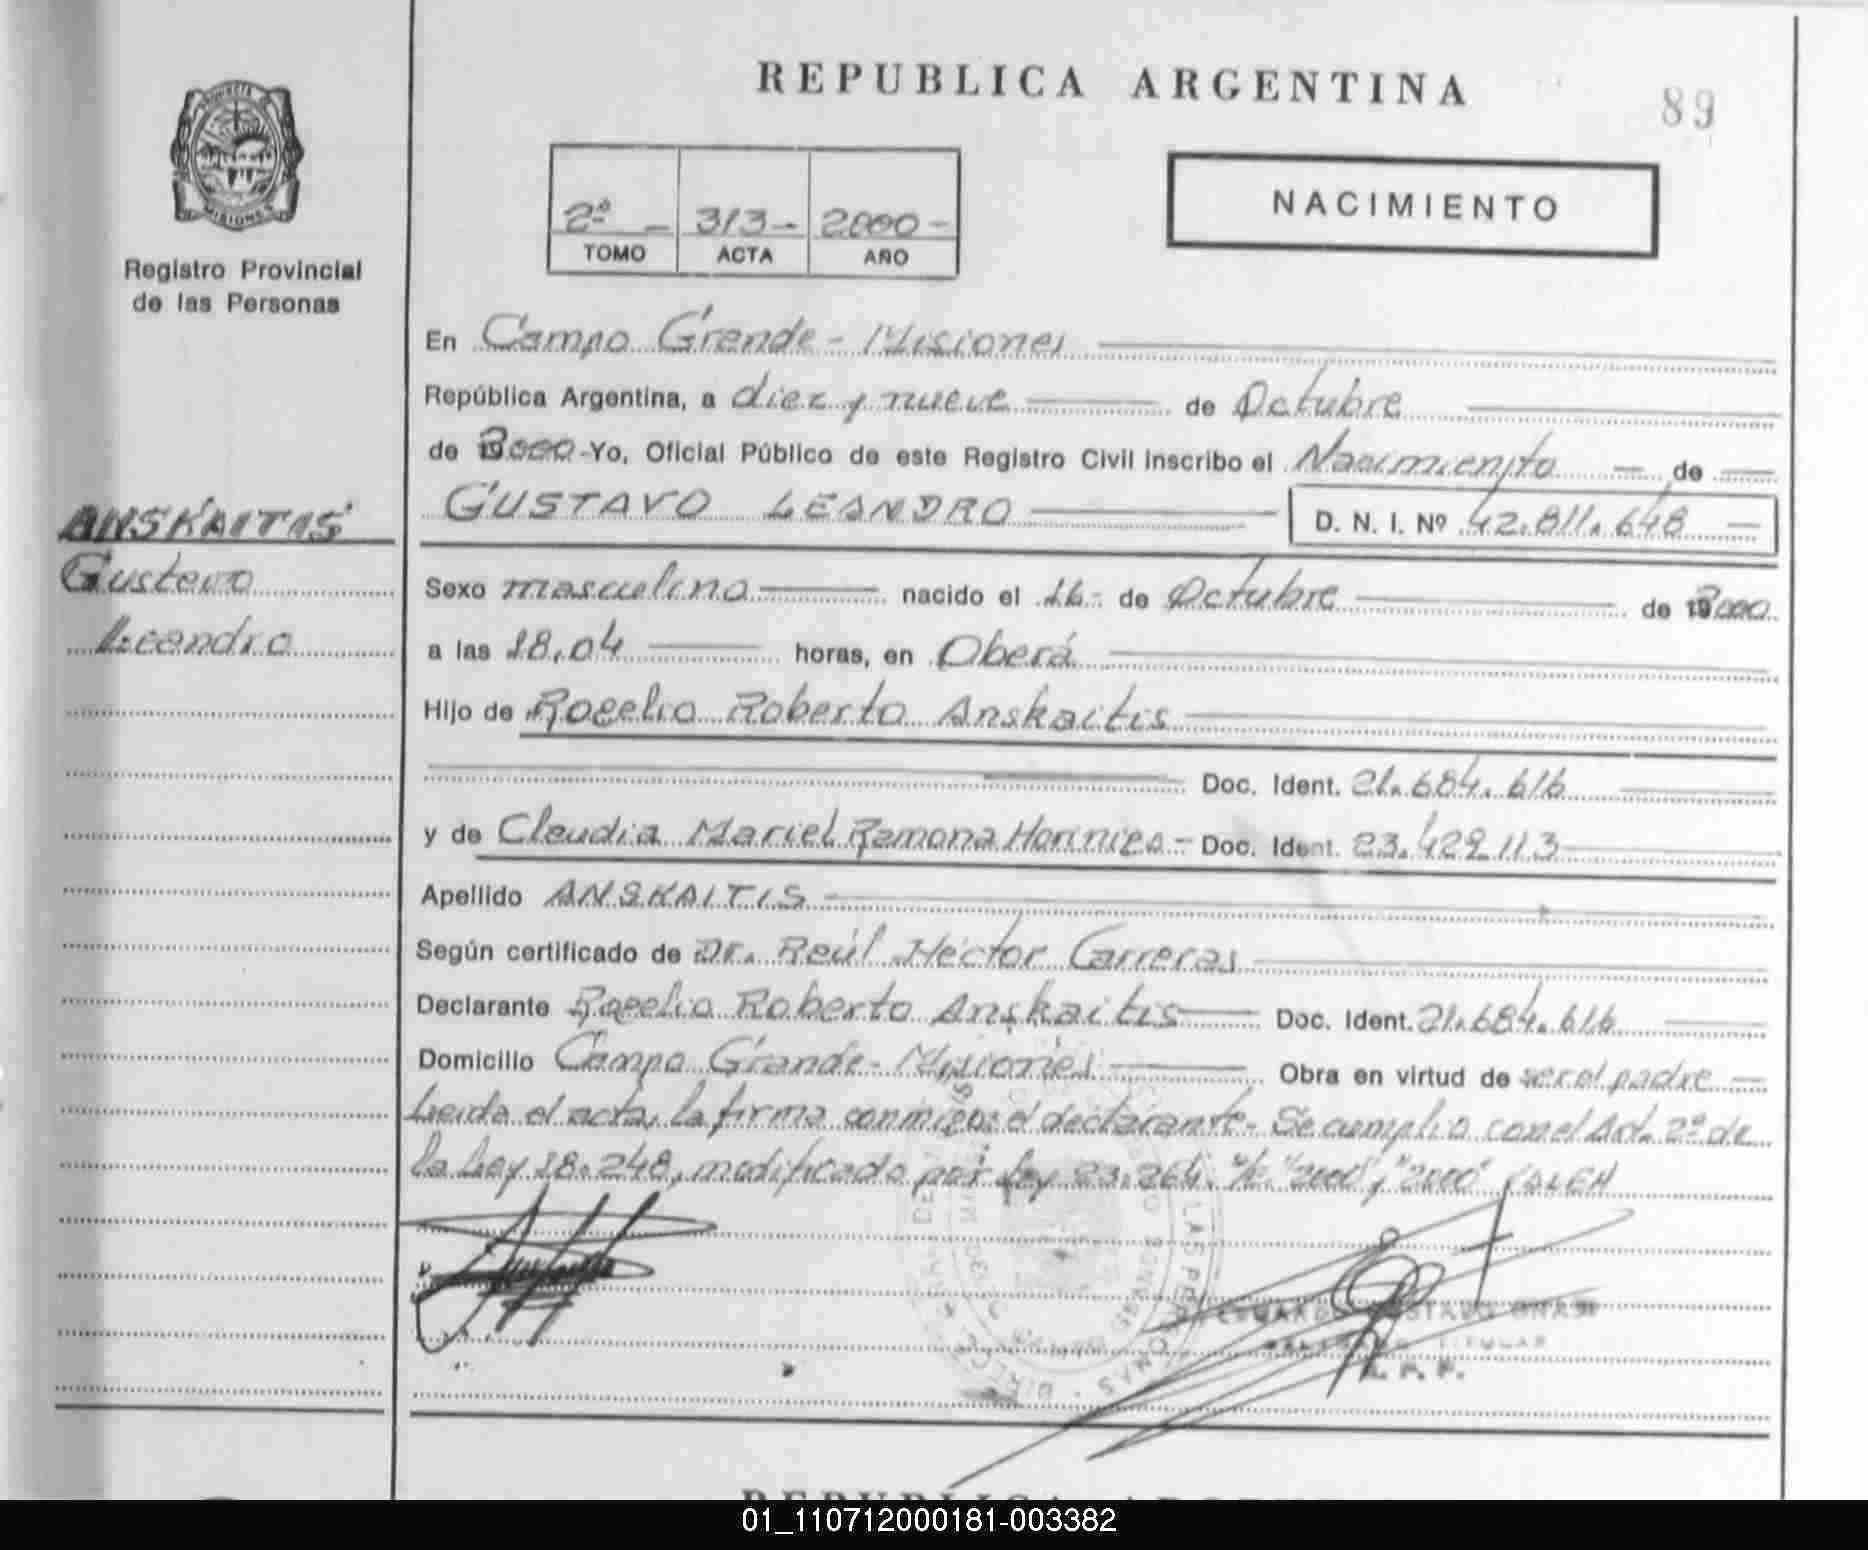 REPUBLICA ARGENTINA
89
PROVINCIA
MISIONES
Registro Provincial
de las Personas
2º - 313- 2000-
TOMO ACTA AÑO
NACIMIENTO
En Campo Grande - Misiones
República Argentina, a diez y nueve de Octubre
de 2000-Yo, Oficial Público de este Registro Civil inscribo el Nacimiento de
GUSTAVO LEANDRO D. N. I. Nº 42.811.648
ANSKAITIS
Gustavo
Leandro
Sexo masculino nacido el 16- de Octubre de 2000
a las 18.04 horas, en Oberá
Hijo de Rogelio Roberto Anskaitis
Doc. Ident. 21.684.616
y de Claudia Mariel Ramona - Doc. Ident. 23.429.113
Apellido ANSKAITIS
Según certificado de Dr. Raúl Héctor Carreras
Declarante Rogelio Roberto Anskaitis Doc. Ident. 21.684.616
Domicilio Campo Grande - Misiones Obra en virtud de ser el padre
Leida el acta, la firma conmigo: el declarante. Se cumplio con el Art. 2º de
la Ley 18.248, modificado por Ley 23.264. "2000" y "2000" VALEN
TITULAR
R. P. P.
REPUBLICA ARGENTINA
01_110712000181-003382